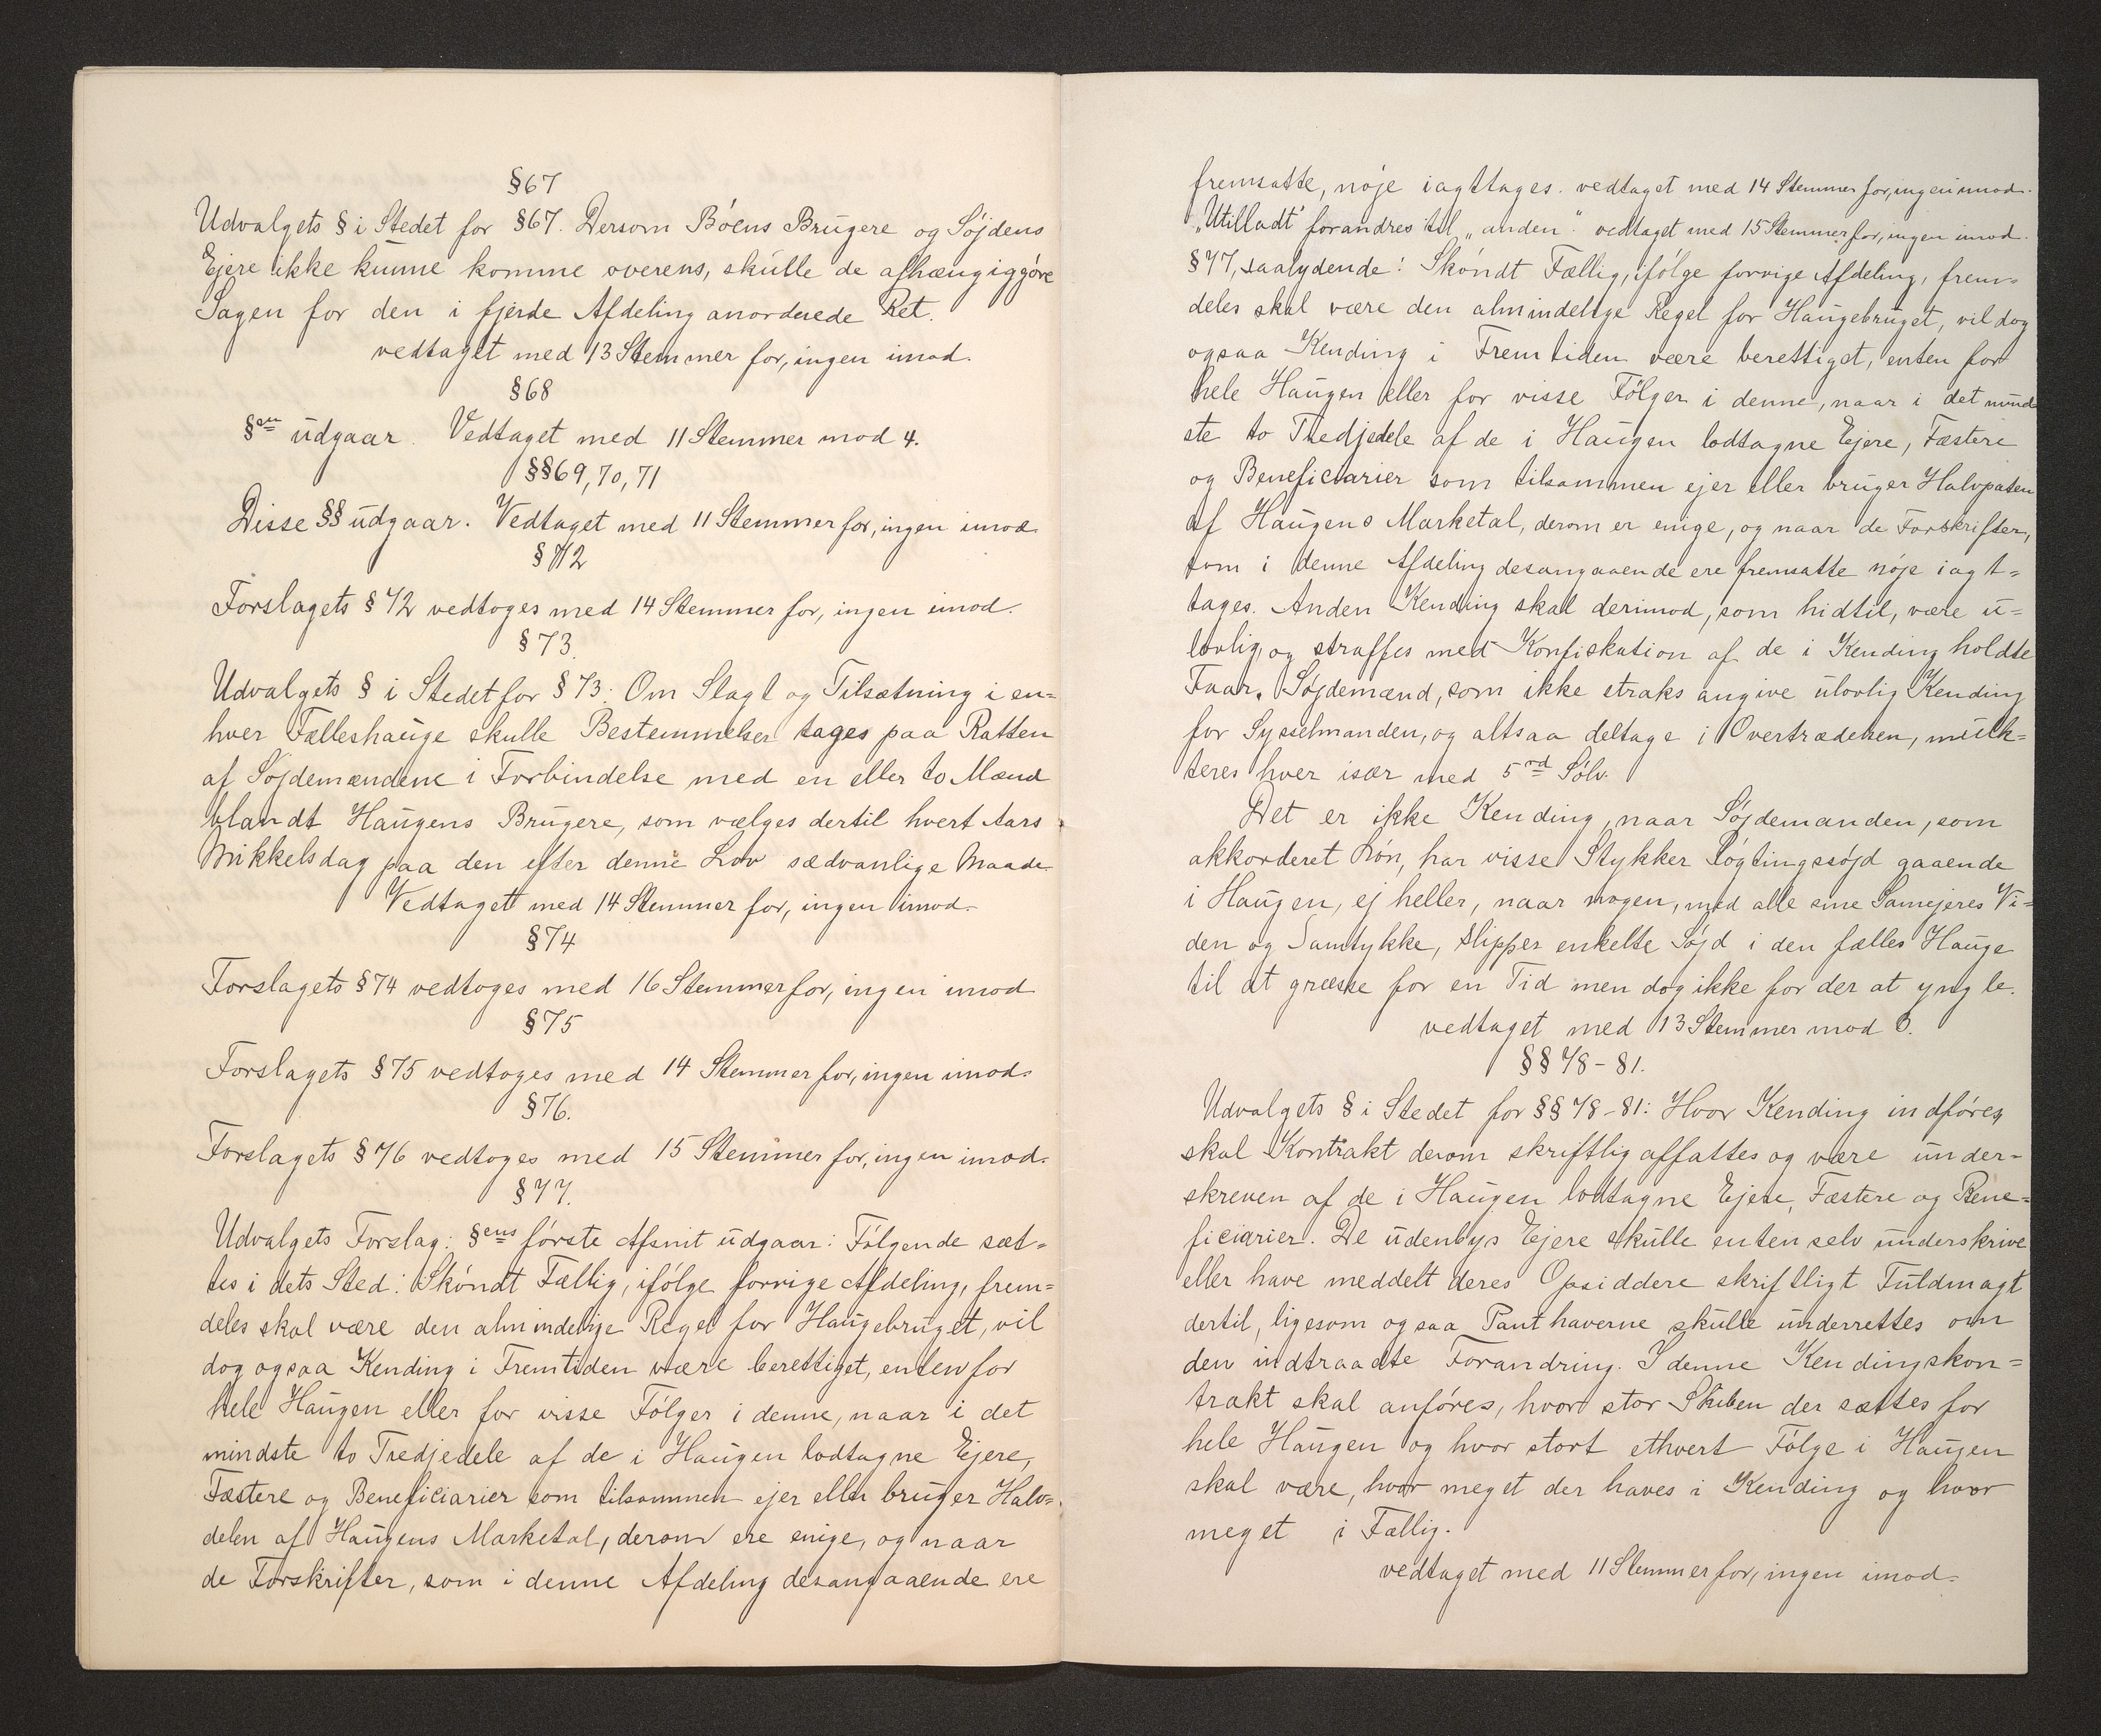 §67
Udvalgets § i Stedet for §67. Dersom Bóens Brugere og Söjdens
Ejere ikke kunne komme overens, skulle de afhængiggöre
Sagen for den i fjerde Afdeling anordnede Ret.
vedtaget med 13 Stemmer for, ingen imod.
§68
§en udgaar. Vedtaget med 11 Stemmer mod 4.
§§69, 70, 71
Disse §§ udgaar. Vedtaget med 11 Stemmer for, ingen imod.
§ 72
Forslagets § 72 vedtoges med 14 Stemmer for, ingen imod.
§ 73.
Udvalgets § i Stedet for § 73: Om Slagt og Tilsætning i en=
hver Fælleshauge skulle Bestemmelser tages paa Ratten
af Söjdemændene i Forbindelse med en eller to Mænd
blandt Haugens Brugere, som vælges dertil hvert Aars
Mikkelsdag paa den efter denne Lov sædvanlige Maade.
Vedtaget med 14 Stemmer for, ingen imod.
§74
Forslagets §74 vedtoges med 16 Stemmer for, ingen imod
§75
Forslagets §75 vedtoges med 14 Stemmer for, ingen imod.
§76.
Forslagets §76 vedtoges med 15 Stemmer for, ingen imod.
§77.
Udvalgets Forslag: §ens förste Afsnit udgaar: Fölgende sæt=
tes i dets Sted: Sköndt Fællig, ifölge forrige Afdeling, frem=
deles skal være den almindelige Regel for Haugebruget, vil
dog ogsaa Kending i Fremtiden være berettiget, enten for
hele Haugen eller for visse Fölger i denne, naar i det
mindste to Tredjedele af de i Haugen lodtagne Ejere,
Fæstere og Beneficiarier som tilsammen ejer eller bruger Halv=
delen af Haugens Marketal, derom ere enige, og naar
de Forskrifter, som i denne Afdeling desangaaende ere
fremsatte, nöje iagttages. vedtaget med 14 Stemmer for, ingen imod.
„Utilladt" forandres til „anden". vedtaget med 15 Stemmer for, ingen imod.
§77, saalydende: Sköndt Fællig, ifölge forrige Afdeling, frem=
deles skal være den almindelige Regel for Haugebruget, vil dog
ogsaa Kending i Fremtiden være berettiget, enten for
hele Haugen eller for visse Fölger i denne, naar i det mind
ste to Tredjedele af de i Haugen lodtagne Ejere, Fæstere
og Beneficiarier som tilsammen ejer eller bruger Halvparten
af Haugens Marketal, derom er enige, og naar de Forskrifter,
som i denne Afdeling desangaaende ere fremsatte nöje iagt=
tages. Anden Kending skal derimod, som hidtil, være u=
lovlig, og straffes med Konfiskation af de i Kending holdte
Faar. Söjdemænd, som ikke straks angive ulovlig Kending
for Sysselmanden, og altsaa deltage i Overtrædelsen, mulk=
teres hver især med 5 rd Sölv.
Det er ikke Kending, naar Söjdemanden, som
akkorderet Lön, har visse Stykker Lögtingssöjd gaaende
i Haugen, ej heller, naar nogen, med alle sine Samejeres Vi=
den og Samtykke, slipper enkelte Söjd i den fælles Hauge
til at græsse for en Tid men dog ikke for der at yngle.
vedtaget med 13 Stemmer mod 0.
§§ 78-81.
Udvalgets § i Stedet for §§ 78-81: Hvor Kending indföres,
skal Kontrakt derom skriftlig affattes og være under=
skreven af de i Haugen lodtagne Ejere, Fæstere og Bene=
ficiarier. De udenbys Ejere skulle enten selv underskrive
eller have meddelt deres Opsiddere skriftligt Fuldmagt
dertil, ligesom ogsaa Panthaverne skulle underrettes om
den indtraadte Forandring. I denne Kendingskon=
trakt skal anföres, hvor stor Skiben der sættes for
hele Haugen og hvor stort ethvert Fölge i Haugen
skal være, hvor meget der haves i Kending og hvor
meget i Fællig.
vedtaget med 11 Stemmer for, ingen imod.